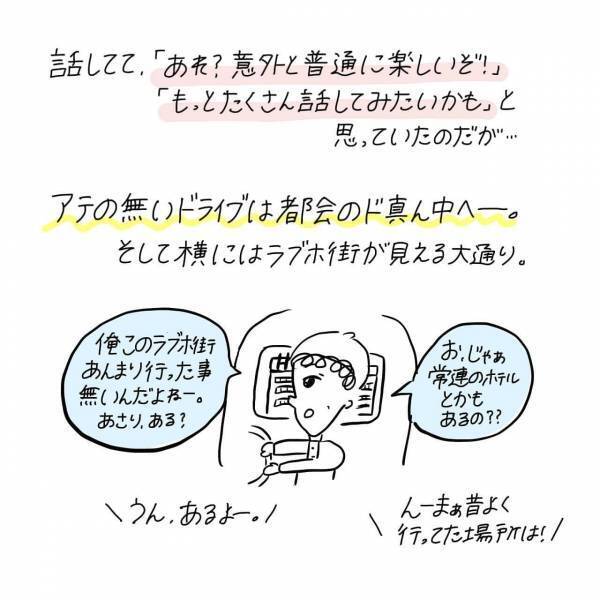 話してて、「あれ？意外と普通に楽しいぞ！」
「もっとたくさん話してみたいかも」と
思っていたのだが…
アテの無いドライブは都会のド真ん中へー。
そして横にはラブホ街が見える大通り。
俺このラブホ街
あんまり行った事
無いんだよねー。
あさり、ある？
うん、あるよー。
お、じゃぁ
常連のホテル
とかも
あるの？？
んーまぁ昔よく
行ってた場所は！